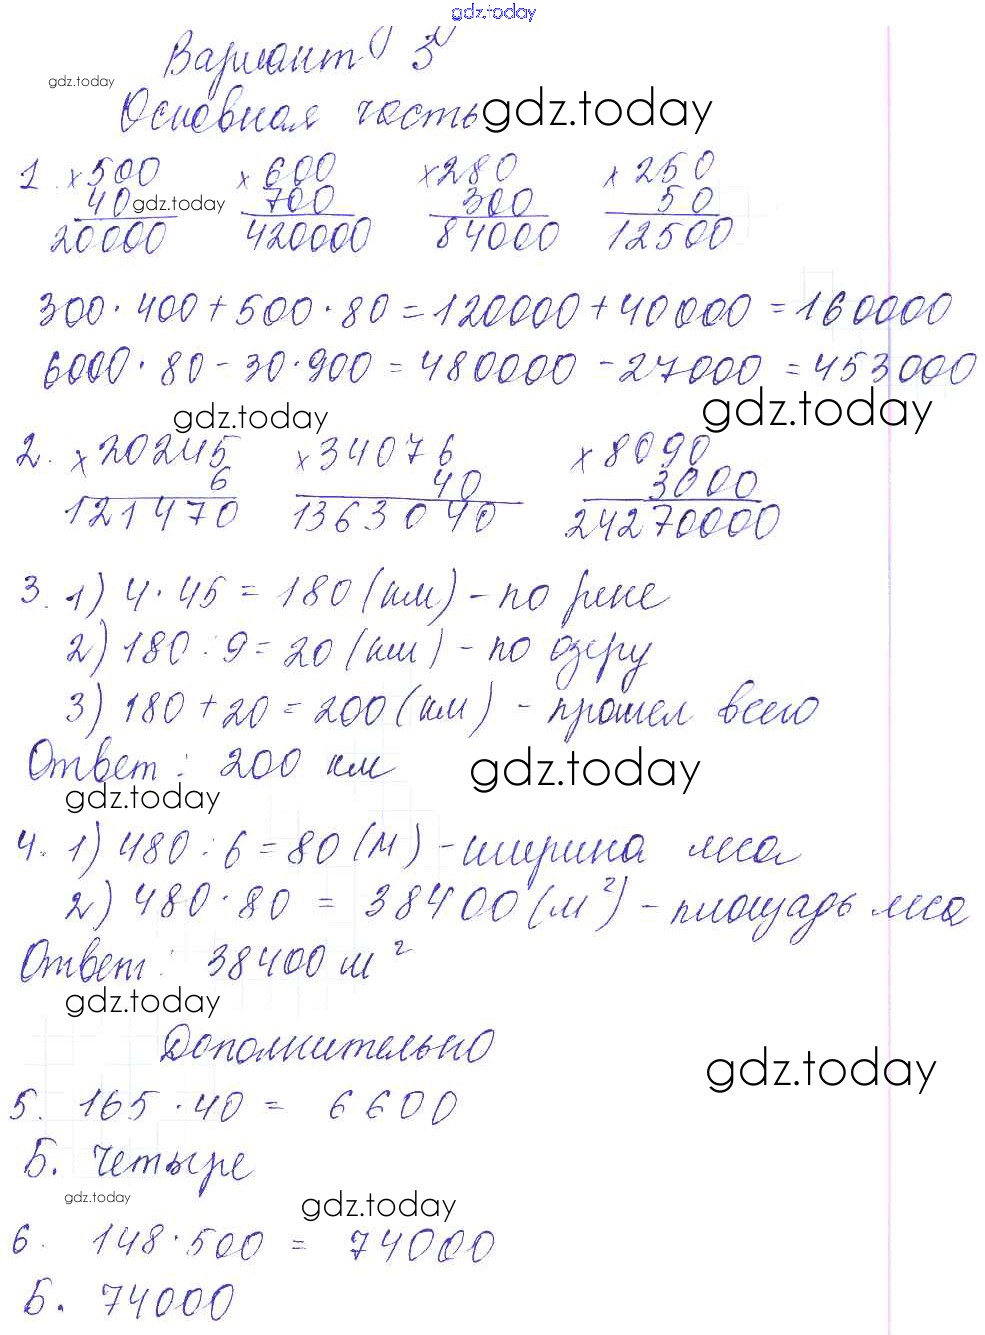 gdz.today
Вариант 3
gdz.today
Основная часть gdz.today
1. × 500 × 600 × 280 × 250
40 gdz.today 700 300 50
20000 420000 84000 12500
300 · 400 + 500 · 80 = 120000 + 40000 = 160000
6000 · 80 - 30 · 900 = 480000 - 27000 = 453000
gdz.today gdz.today
2. × 20245 × 34076 × 8090
6 40 3000
121470 1363040 24270000
3. 1) 4 · 45 = 180 (км) - по реке
2) 180 : 9 = 20 (км) - по озеру
3) 180 + 20 = 200 (км) - прошел всего
Ответ: 200 км gdz.today
gdz.today
4. 1) 480 : 6 = 80 (м) - ширина леса
2) 480 · 80 = 38400 (м²) - площадь леса
Ответ: 38400 м²
gdz.today
Дополнительно
gdz.today
5. 165 · 40 = 6600
Б. Четыре
gdz.today gdz.today
6. 148 · 500 = 74000
Б. 74000